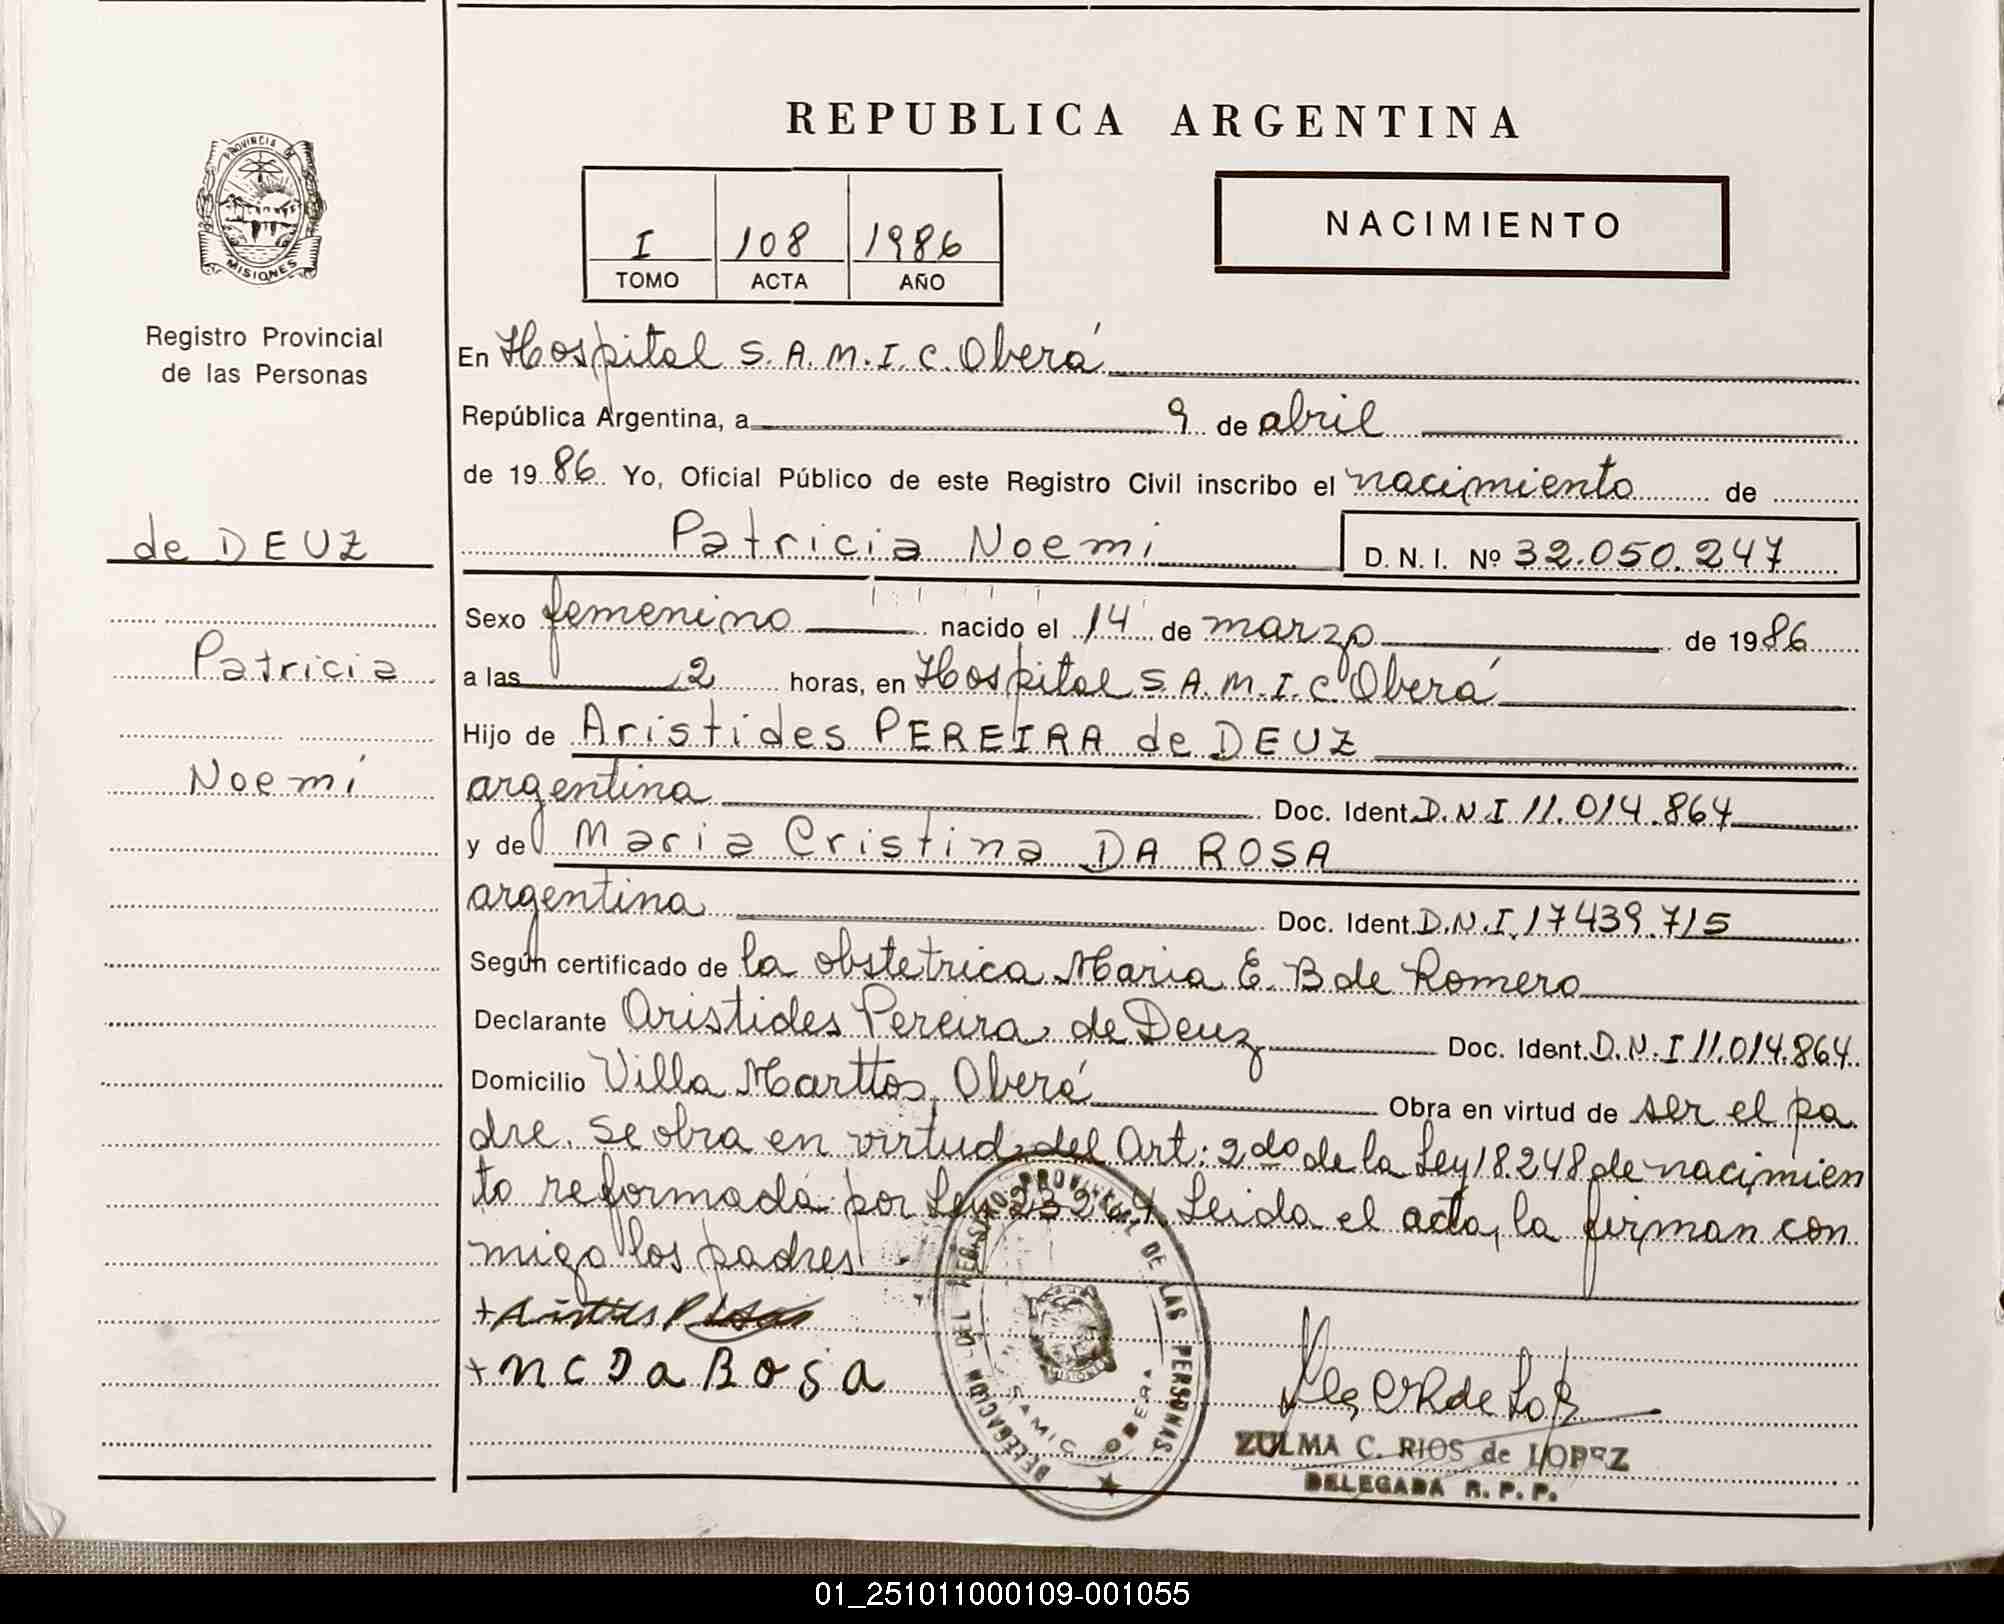 REPUBLICA ARGENTINA
PROVINCIA DE
MISIONES
Registro Provincial
de las Personas
I 108 1986
TOMO ACTA AÑO
NACIMIENTO
En Hospital S.A.M.I.C. Oberá
República Argentina, a 9 de abril
de 1986 Yo, Oficial Público de este Registro Civil inscribo el nacimiento de
de DEUZ
Patricia Noemi D. N. I. Nº 32.050.247
Sexo femenino nacido el 14 de marzo de 1986
Patricia
a las 2 horas, en Hospital S A.M.I.C. Oberá
Hijo de Aristides PEREIRA de DEUZ
Noemí
argentina Doc. Ident. D.N.I 11.014.864
y de Maria Cristina DA ROSA
argentina Doc. Ident. D.N.I. 17439.715
Según certificado de la obstetrica Maria E. B de Romero
Declarante Aristides Pereira de Deuz Doc. Ident. D.N.I 11.014.864
Domicilio Villa Marttos Oberá Obra en virtud de ser el pa
dre. Se obra en virtud del Art: 2do de la Ley 18.248 de nacimien
to reformada por Ley 23264 Leida el acta, la firman con
migo los padres
+ M C Da Rosa
DELEGACION DEL REGISTRO PROVINCIAL DE LAS PERSONAS
MISIONES
SAMIC OBERA
ZULMA C. RIOS de LOPEZ
DELEGADA R. P. P.
01_251011000109-001055